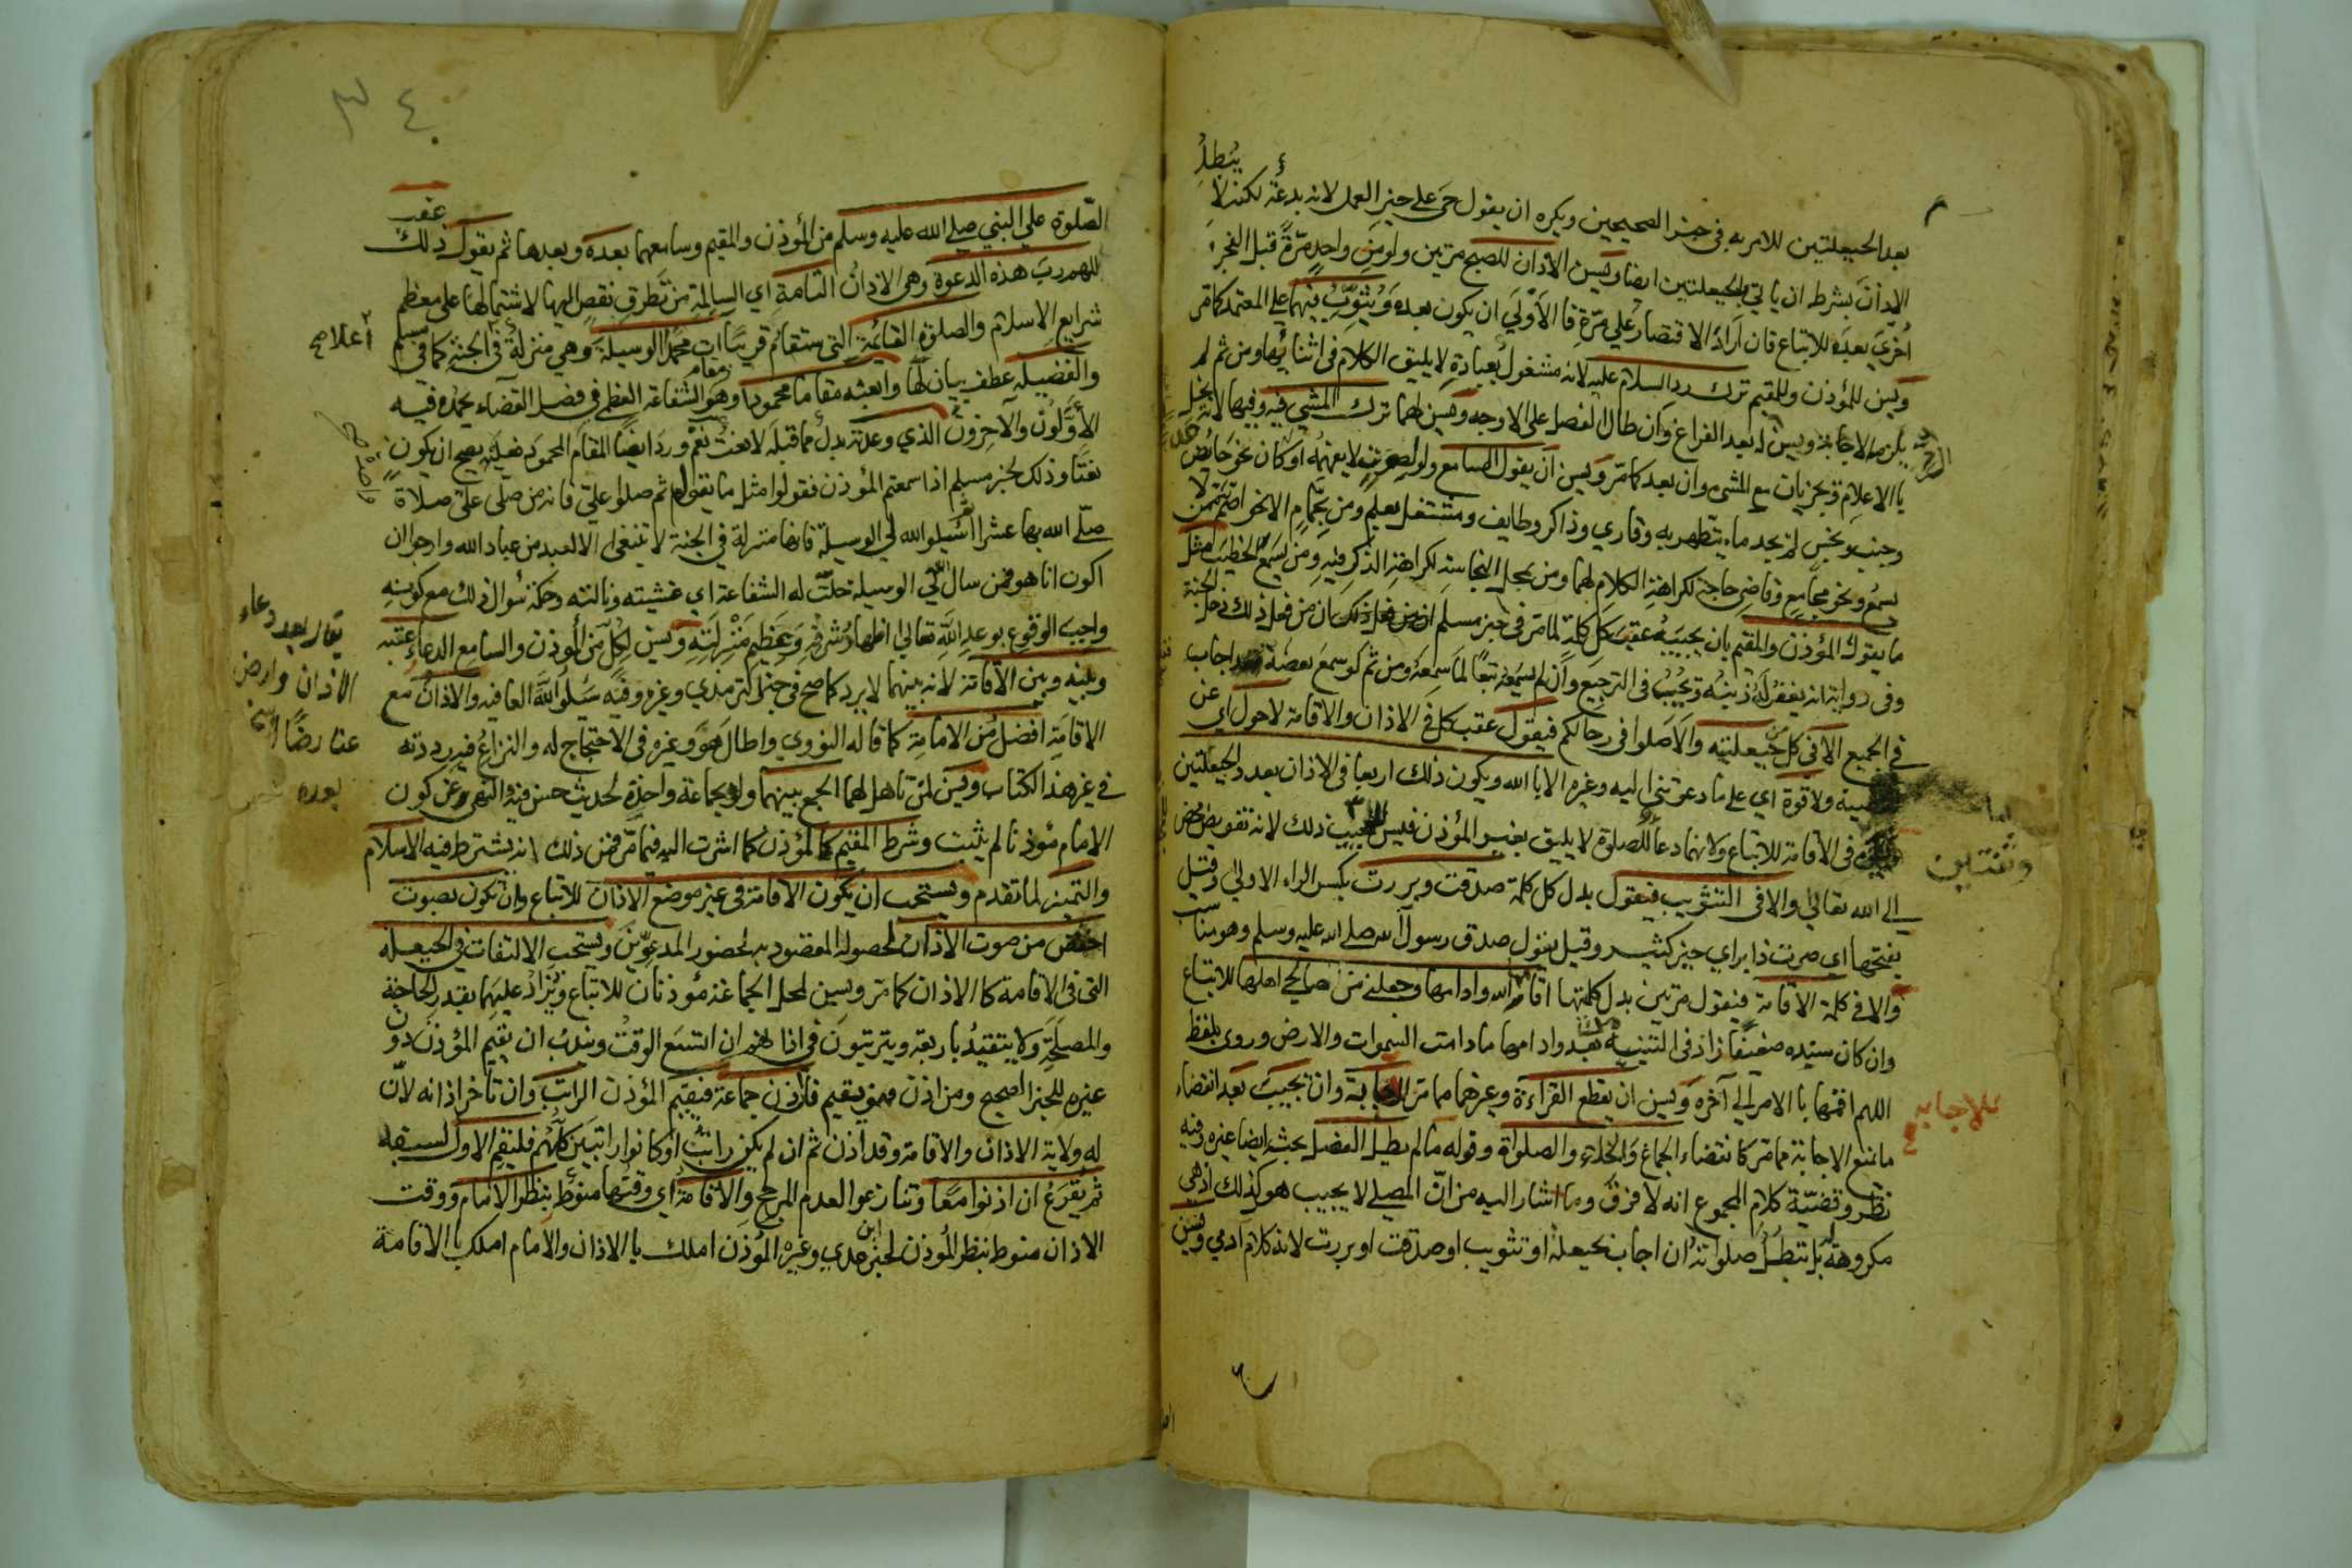 يبطل
بعد الحيعلتين للامر به في خبر الصحيحين ويكره ان يقول حي على خير العمل لانه بدعة لكنه لا
الاذان بشرط ان ياتي بالحيعلتين ايضا ويسن الاذان للصبح مرتين ولو من واحد مرة قبل الفجر و
اخرى بعده للاتباع فان اراد الاقتصار على مرة فالاولى ان يكون بعده ويثوب فيهما على المعتمد كما مر
ويسن للمؤذن وللمقيم ترك رد السلام عليه لانه مشغول بعبادة لا يليق الكلام في اثنائها ومن ثم لم
يلزمه الاجابة ويسن له بعد الفراغ وان طال الفصل على الاوجه ويسن لهما ترك المشي فيه وفيها لانه يخل
با الاعلام ويجزيان مع المشي وان بعد كما مر ويسن ان يقول السامع ولو لصوت لا يفهمه او كان نحو حائض
وجنب ونجس لم يجد ماء يتطهر به وقاري وذاكر وطايف ومشتغل بعلم ومن بحمام الا نحو اصم لا
يسمع ونحو مجامع وقاضي حاجة لكراهة الكلام لهما ومن بمحل النجاسة لكراهة الذكر فيه ومن يسمع الخطيب مثل
ما يقول المؤذن والمقيم بان يجيبه عقب كل كلمة لما مر في خبر مسلم ان من فعل ذلك دخل الجنة
وفي رواية انه يغفر له ذنبه ويجيب في الترجيع وان لم يسمعه تبعا لما سمعه ومن ثم لو سمع بعضه اجاب
في الجميع الا في كل من حيعلتيه والا صلوا في رحالكم فيقول عقب كل في الاذان والاقامة لا حول اي عن
ولا قوة اي على ما دعوتني اليه وغيره الا با الله ويكون ذلك اربعا في الاذان بعدد الحيعلتين
في الاقامة للاتباع ولانهما دعا للصلوة لا يليق بغير المؤذن فيسن للمجيب ذلك لانه تفويض محض
الى الله تعالى والا في التثويب فيقول بدل كل كلمة صدقت وبررت بكسر الراء الاولى وقيل
بفتحها اي صرت ذا بر اي خير كثير وقيل يقول صدق رسول الله صلى الله عليه وسلم وهو مناسب
والا في كلمة الاقامة فيقول مرتين بدل كلمتها اقامها الله وادامها وجعلني من صالحي اهلها للاتباع
وان كان سنده ضعيفا زاد في التنبيه بعد وادامها ما دامت السموات والارض وروي بلفظ
اللهم اقمها با الامر الى آخره ويسن ان يقطع القراءة وغيرهما مما مر للاجابة وان يجيب بعد انقضاء
ما يمنع الاجابة مما مر كانقضاء الجماع والخلاء والصلوة وقوله ما لم يطل الفصل بحث ايضا غيره وفيه
نظر وقضية كلام المجموع انه لا فرق وما اشار اليه من ان المصلي لا يجيب هو كذلك اذ هي
مكروهة له بل تبطل صلواته ان اجاب بحيعلة او تثويب او صدقت او بررت لانه كلام ادمي ويسن
وثنتين
للاجابة
٣٤
الصلوة على النبي صلى الله عليه وسلم من المؤذن والمقيم وسامعهما بعده وبعدها ثم يقول عقب ذلك
اللهم رب هذه الدعوة وهي الاذان التامة اي السالمة من تطرق نقص اليها لاشتمالها على معظم
شرايع الاسلام والصلوة القائمة التي ستقام قريبا ات محمدا الوسيلة وهي منزلة في الجنة كما في مسلم
والفضيلة عطف بيان لها وابعثه مقاما محمودا وهو مقام الشفاعة العظمى في فصل القضاء يحمده فيه
الاولون والآخرون الذي وعدته بدل مما قبله لا نعت نعم ورد ايضا المقام المحمود فعليه يصح ان يكون
نعتا وذلك لخبر مسلم اذا سمعتم المؤذن فقولوا مثل ما يقول ثم صلوا علي فانه من صلى علي صلاة
صلى الله بها عشرا ثم سلوا الله لي الوسيلة فانها منزلة في الجنة لا تنبغي الا لعبد من عباد الله وارجو ان
اكون انا هو فمن سال لي الوسيلة حلت له الشفاعة اي غشيته ونالته وحكمة سؤال ذلك مع كونه
واجب الوقوع بوعد الله تعالى اظهار شرفه وعظيم منزلته ويسن لكل من المؤذن والسامع الدعاء عقبه
وبينه وبين الاقامة لانه بينهما لا يرد كما صح في خبر الترمذي وغيره وفيه سلوا الله العافية والاذان مع
الاقامة افضل من الامامة كما قاله النووي واطال هو وغيره في الاحتجاج له والنزاع فيه رددته
في غير هذا الكتاب ويسن لمن تاهل لهما الجمع بينهما ولو بجماعة واحدة لحديث حسن فيه والنهي عن كون
الامام مؤذنا لم يثبت وشرط المقيم كالمؤذن كما اشرت اليه فيما مر فمن ذلك انه يشترط فيه الاسلام
والتمييز لما تقدم ويستحب ان يكون الاقامة في غير موضع الاذان للاتباع وان تكون بصوت
اخفض من صوت الاذان لحصول المقصود به لحضور المدعوين ويستحب الالتفات في الحيعلة
التي في الاقامة كا الاذان كما مر ويسن لمحل الجماعة مؤذنان للاتباع ويزاد عليهما بقدر الحاجة
والمصلحة ولا يتقيد باربعة ويترتبون في اذانهم ان اتسع الوقت ويندب ان يقيم المؤذن دون
غيره للخبر الصحيح ومن اذن فهو يقيم فان اذن جماعة فيقيم المؤذن الراتب وان تاخر اذانه لان
له ولاية الاذان والاقامة وقد اذن ثم ان لم يكن راتب او كانوا راتبين كلهم فليقم الاول لسبقه
ثم يقرع ان اذنوا معا وتنازعوا لعدم المرجح والاقامة اي وقتها منوط بنظر الامام ووقت
الاذان منوط بنظر المؤذن لخبر ابن عدي وغيره المؤذن املك با الاذان والامام املك با الاقامة
اعلاه
يقال بعد دعاء
الاذان وارض
عنا رضا
بعده